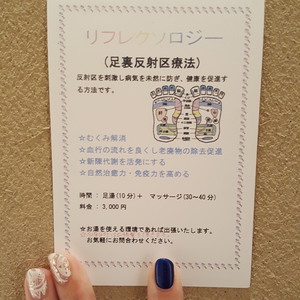 リフレクソロジー
(足裏反射区療法)
反射区を刺激し病気を未然に防ぎ、健康を促進す
る方法です。
☆むくみ解消
☆血行の流れを良くし老廃物の除去促進
☆新陳代謝を活発にする
☆自然治癒力・免疫力を高める
時間 : 足湯(10分)+ マッサージ(30〜40分)
料金 : 3,000円
☆お湯を使える環境であれば出張いたします。
お気軽にお問合わせください。